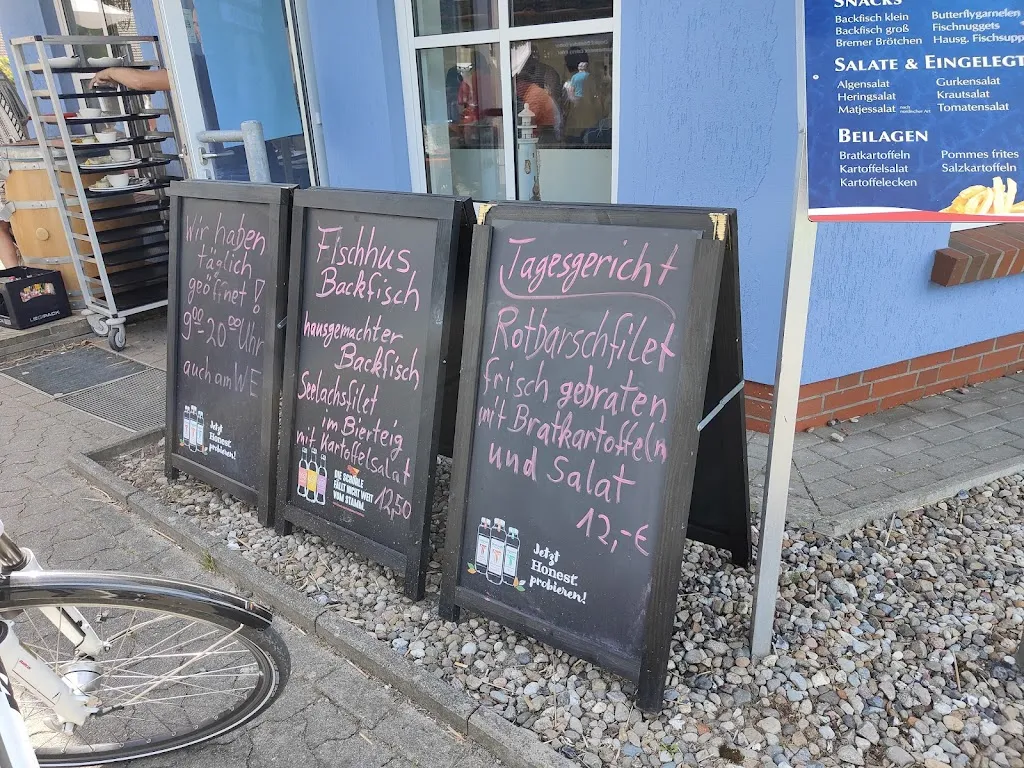 Wir haben
täglich
geöffnet!
9⁰⁰ 20⁰⁰ Uhr
auch am WE
Jetzt
Honest
probieren!
Fischhus
Backfisch
hausgemachter
Backfisch
Seelachsfilet
im Bierteig
mit Kartoffelsalat
12,50
DIE SCHORLE
FÄLLT NICHT WEIT
VOM STAMM.
Tagesgericht
Rotbarschfilet
frisch gebraten
mit Bratkartoffeln
und Salat
12,-€
Jetzt
Honest
probieren!
SNACKS
Backfisch klein
Backfisch groß
Bremer Brötchen
Butterflygarnelen
Fischnuggets
Hausg. Fischsupp
SALATE & EINGELEGT
Algensalat
Heringsalat
Matjessalat
Gurkensalat
Krautsalat
Tomatensalat
BEILAGEN
Bratkartoffeln
Kartoffelsalat
Kartoffelecken
Pommes frites
Salzkartoffeln